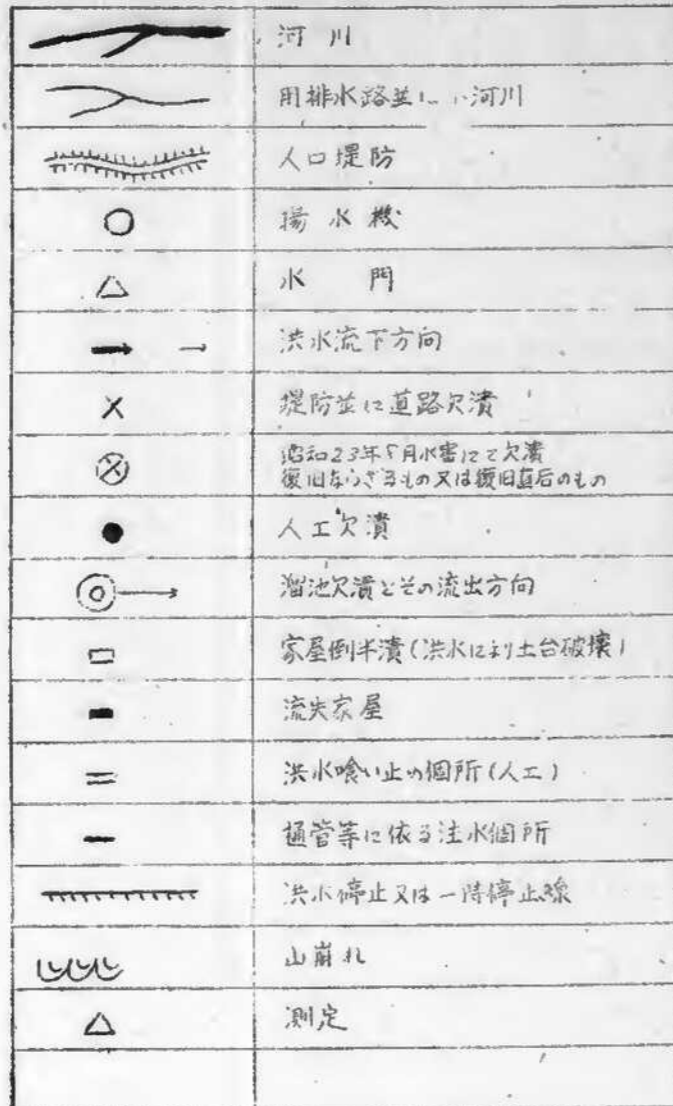 河川
用排水路並に小河川
人口堤防
揚水機
水門
洪水流下方向
堤防並に道路欠潰
昭和23年8月水害にて欠潰
復旧ならざるもの又は復旧直后のもの
人工欠潰
溜池欠潰とその流出方向
家屋倒半潰(洪水により土台破壊)
流失家屋
洪水喰い止の個所(人工)
樋管等に依る注水個所
洪水停止又は一時停止線
山崩れ
測定